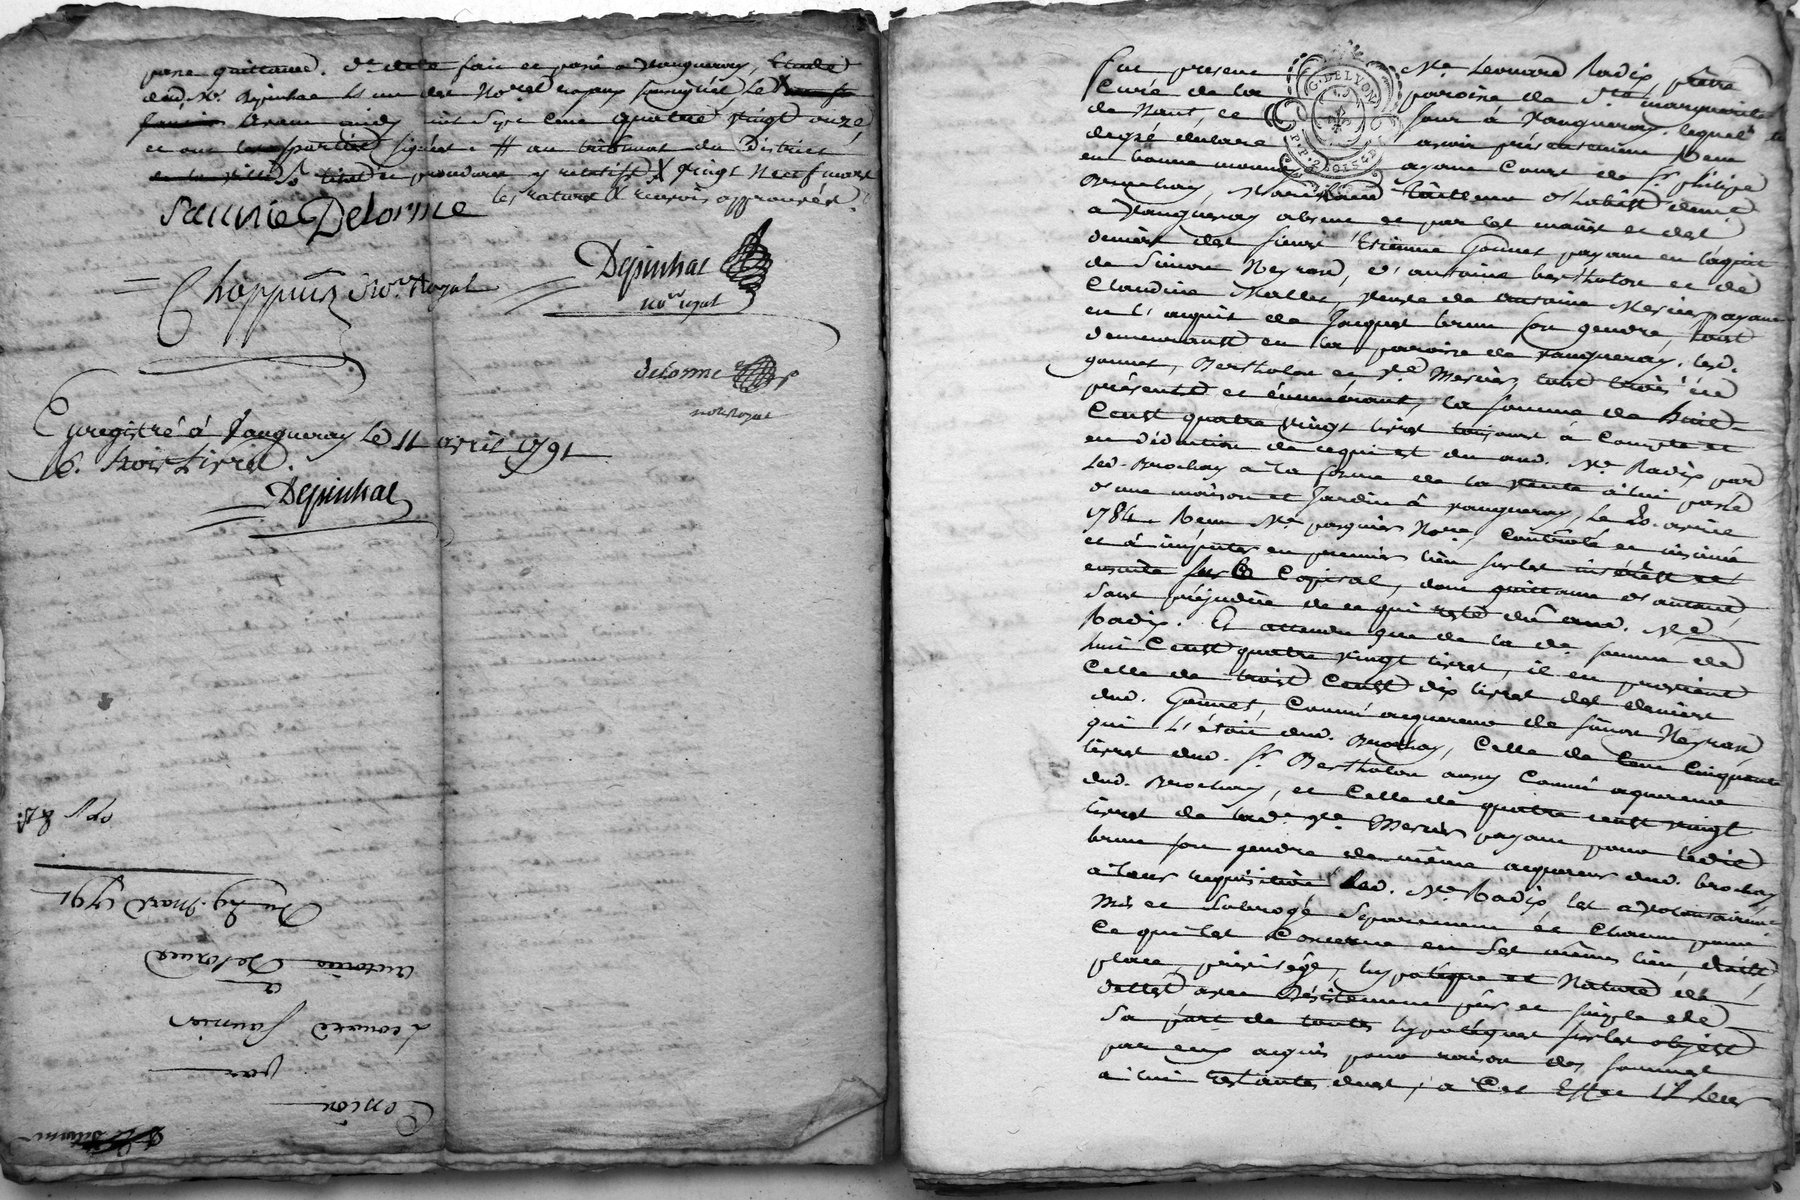 pare quittance. De fait et passé a Vaugneray, Etude
dud. Me. Depinhac L'un des No.res royaux soussignés, Le
avant midy mil Sept Cent quatre vingt onze,
et ont signés. # au tribunal du District
et procedure y relatifs X vingt Neuf mars
les ratures & renvois approuvés.
Saunié Delorme
Chappuis No.re Royal
Depinhac
no.re royal
delorme
not. Royal
Enregistré à Vaugneray Le 11 avril 1791
trois Livres.
Depinhac
Du 29. Mars 1791
Antoine Delorme
a
Leonard Saunier
par
Cession
Fut present Me. Leonard Radix, prêtre
Curé de la paroisse de Ste. marguerite
G. DE LYON
de Vaugneray, lequel
degré declare avoir présentement Reçu
en bonne monnoye ayant Cours de Sr. philipe
Brochay, Marchand tailleur d'habits demt.
à Vaugneray absent et par les mains et des
deniers des sieurs Etienne Gonnet payant en l'aquit
de Simon Neyrand, d'antoine bertholon et de
Claudine Mallet, veuve de antoine Mercier payant
en l'acquit de Jacques brun son gendre, tous
demeurants en la paroisse de vaugneray, lesd.
gonnet, Bertholon et ve. Mercier, tous trois ici
présents et la somme de huit
Cents quatre vingt livres toujours à Compte et
en déduction de ce qui est du aud. Me. Radix par
Led. Brochay a la forme de la vente à lui passée
d'une maison et Jardin à vaugneray, le 20. avril
1784. Reçu Me. pasquier No.re, Controlé et insinué
et à imputer en premier lieu sur les intérêts et
ensuite sur le Capital, dont quittance d'autant,
Sans préjudice de ce qui reste dû aud. Me.
Radix. Et attendu que de la de. somme de
huit Cents quatre vingt livres, il en provient
Celle de trois Cents dix livres des deniers
dud. Gonnet, Comme acquereur de simon Neyrand
qui L'étoit dud. Brochay, Celle de Cent Cinquante
livres dud. Sr. Bertholon aussy Comme acquereur
dud. Brochay, et Celle de quatre cents vingt
livres de lad. ve. Mercier payant pour ledit
brun son gendre de même acquereur dud. brochay
à leur requisition Led. Me. Radix les a volontairemt.
Mis et Subrogé Séparement et Chacun pour
Ce qui les Concerne en Ses mêmes lieu, droits,
place, privilége, hypotéque et Nature de
dettes avec Désistement pur et simple de
Sa part de toutes hypotéques sur les objets
par eux acquis pour raison des sommes
à lui restantes dues, à Cet Effet il Leur